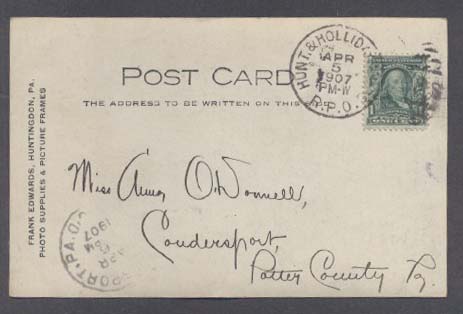 HUNT. & HOLLIDA
APR
5
1907
PM-W
R.P.O.
POST CARD
THE ADDRESS TO BE WRITTEN ON THIS
FRANK EDWARDS, HUNTINGDON, PA.
PHOTO SUPPLIES & PICTURE FRAMES
Miss Anna O'Donnell,
Coudersport,
Potter County Pa.
PORT. PA.
APR
6
1907